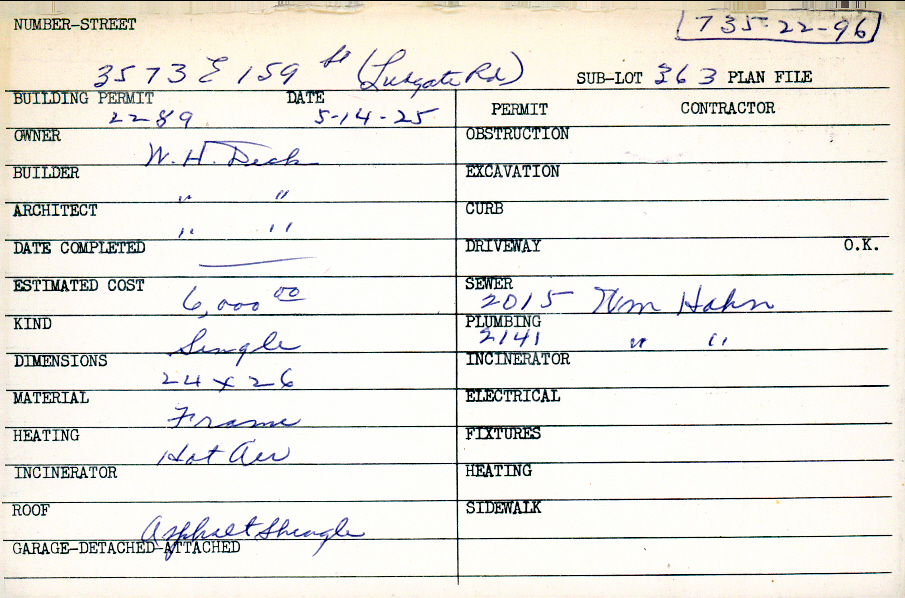 NUMBER-STREET
735-22-96
3573 E 159 St (Ludgate Rd)
SUB-LOT 363 PLAN FILE
BUILDING PERMIT DATE
2289 5-14-25
OWNER
W. H. Deck
BUILDER
" "
ARCHITECT
" "
DATE COMPLETED
ESTIMATED COST
6,000 00
KIND
Single
DIMENSIONS
24 x 26
MATERIAL
Frame
HEATING
Hot Air
INCINERATOR
ROOF
Asphalt Shingle
GARAGE-DETACHED-ATTACHED
PERMIT CONTRACTOR
OBSTRUCTION
EXCAVATION
CURB
DRIVEWAY O.K.
SEWER
2015 Wm Hahn
PLUMBING
2141 " "
INCINERATOR
ELECTRICAL
FIXTURES
HEATING
SIDEWALK